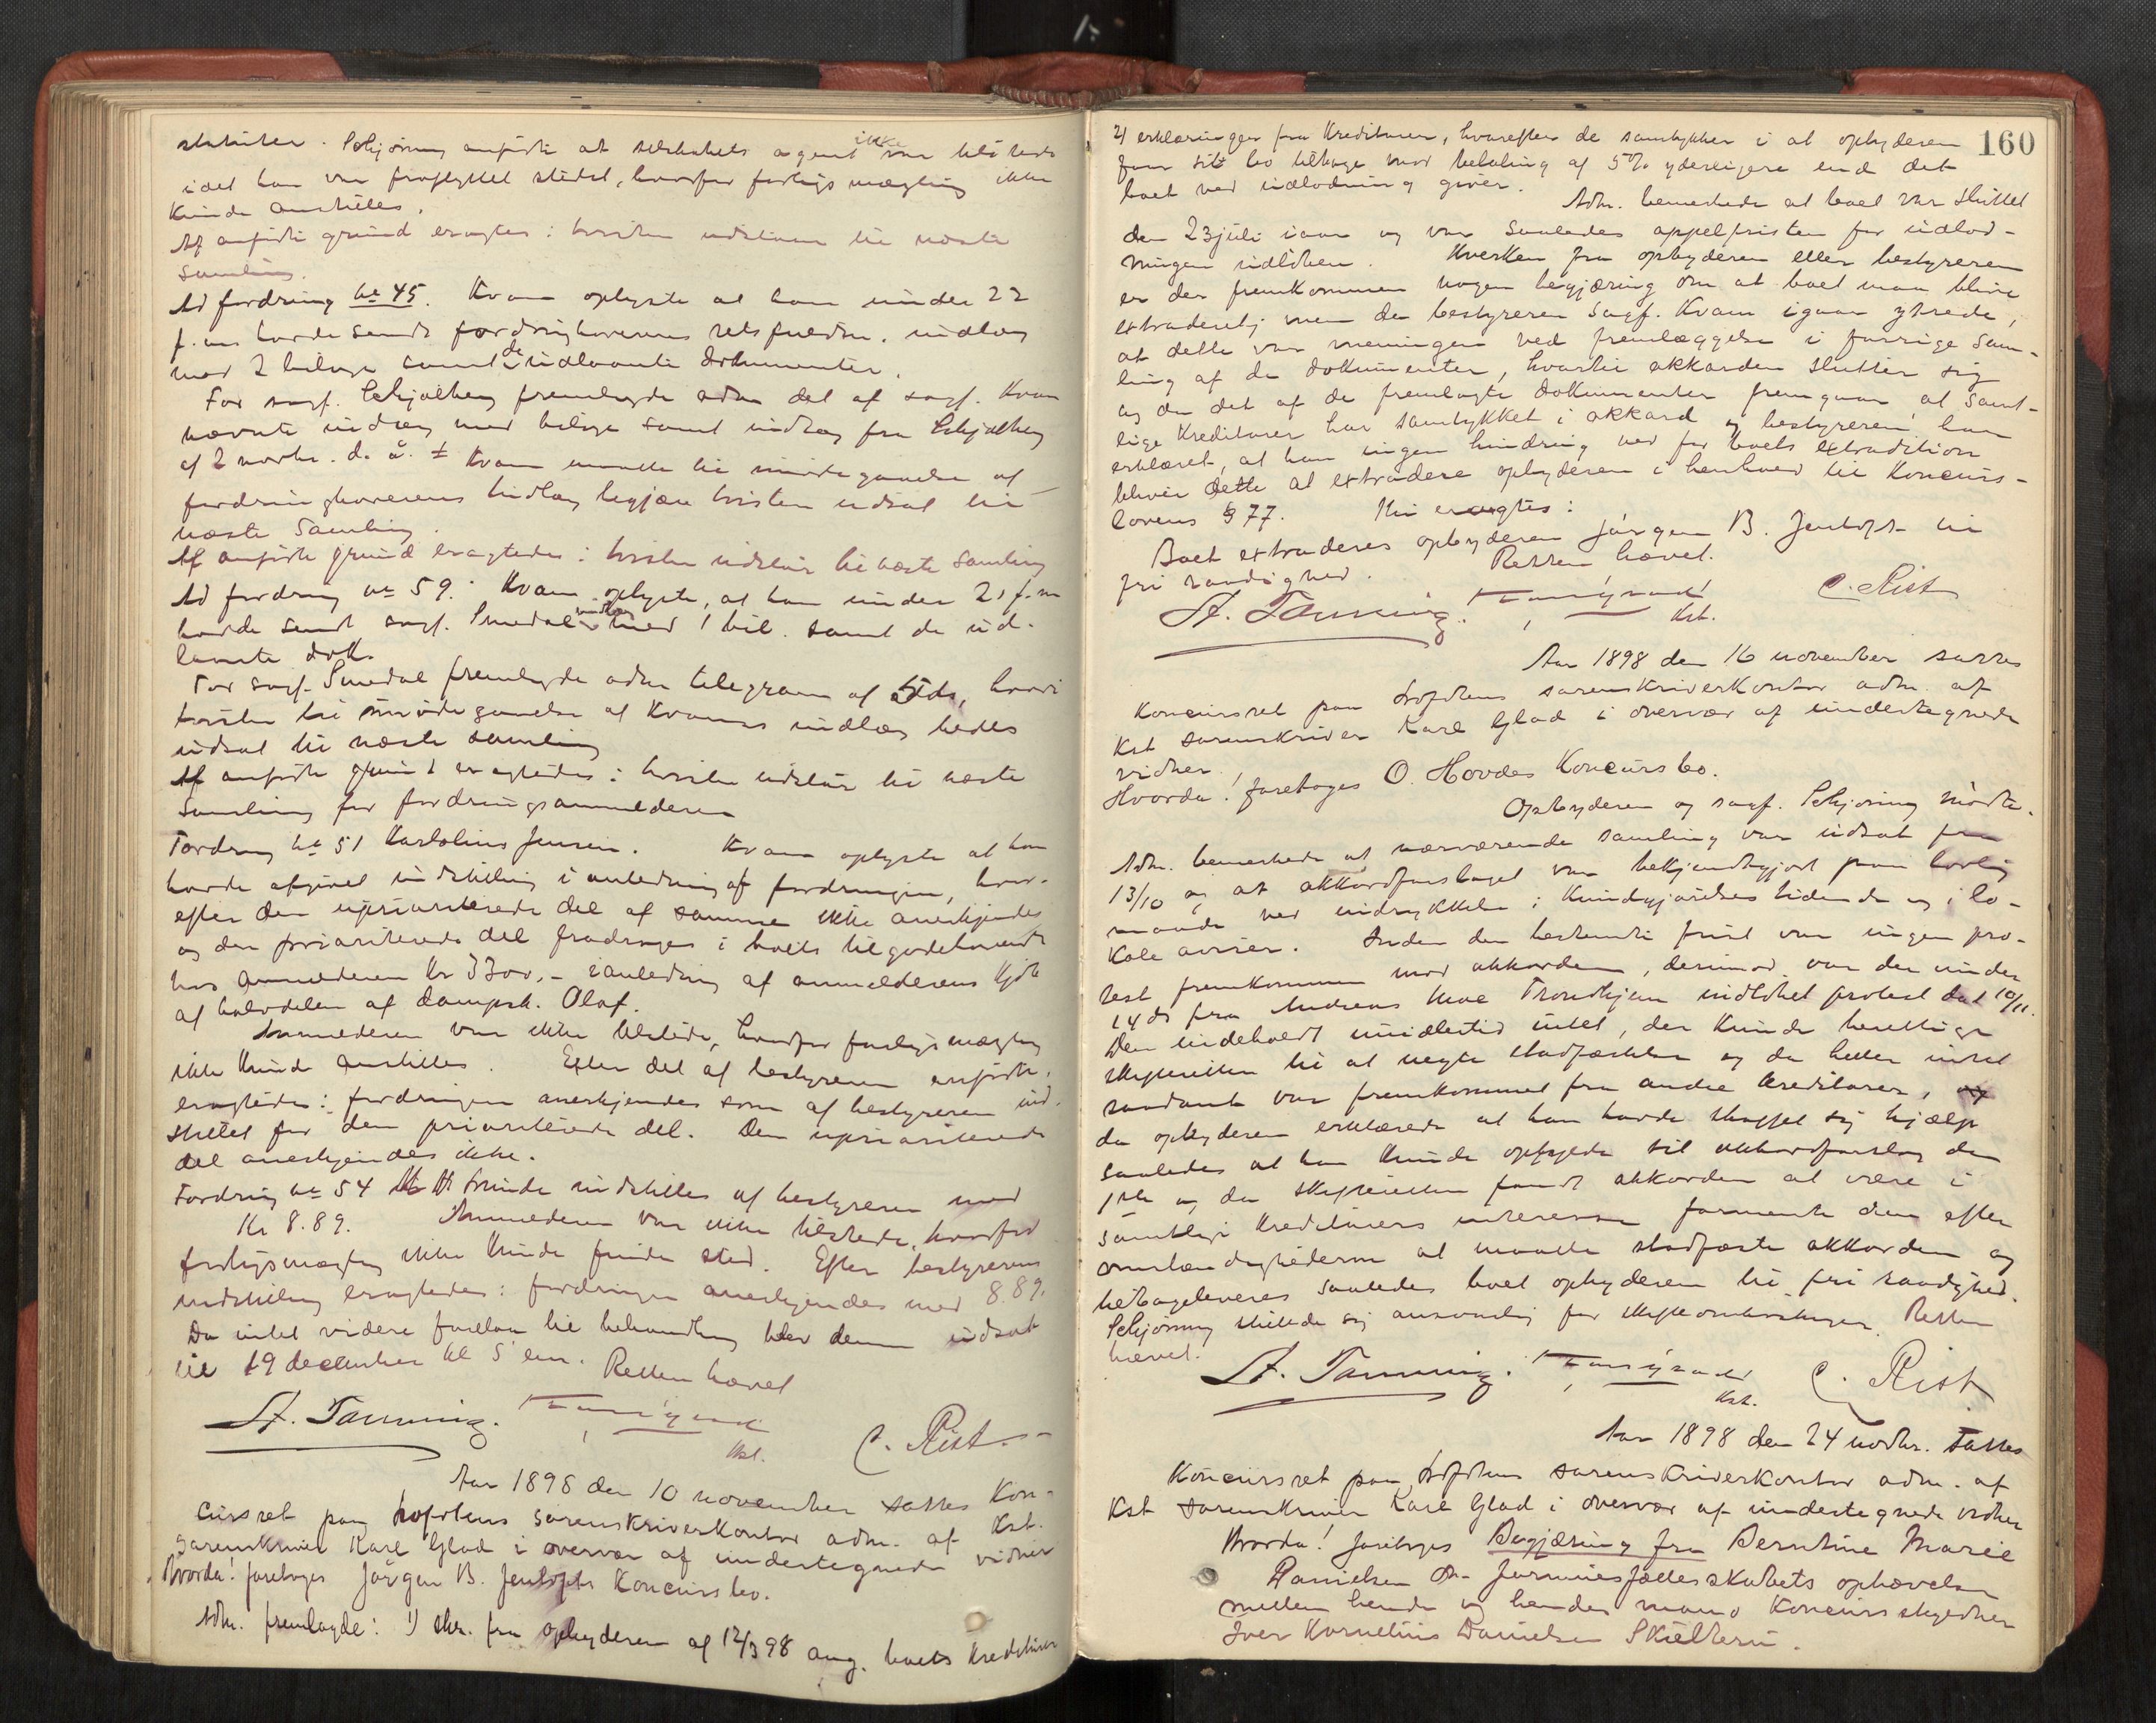 statuter. Schjöning anförte at selskabets agent ikke var tilstede
idet han var fraflyttet stedet, hvorfor forligsmægling ikke
kunde anstilles.
Af anförte grund eragtes: tvisten udstaar til næste
samling.
Ad fordring No 45. Kvam oplyste at han under 22
f. m. havde sendt fordringshaverens retsfuldm. indlæg
med 2 bilage samt de udlaante dokumenter.
For sagf. Schjølberg fremlagde adm. det af sagf. Kvam
nævnte indlæg med bilage samt indlæg fra Schjølberg
af 2 novbr. d. å. Kvam maatte til imödegaaelse af
fordringshaverens indlæg begjære tvisten udsat til
næste samling.
Af anförte grund eragtedes: tvisten udstaar til næste samling
Ad fordring No 59. Kvam oplyste, at han under 21 f. m.
havde sendt sagf. Smedal indlæg med 1 bil. samt de ud-
laante dok.
For sagf. Smedal fremlagde adm. telegram af 5 ds, hvori
tvisten til imödegaaelse af Kvams indlæg bedes
udsat til næste samling
Af anförte grund eragtedes: tvisten udstaar til næste
samling for fordringsanmelderen
Fordring No 51 Karolius Jensen. Kvam oplyste at han
havde afgivet indstilling i anledning af fordringen, hvor-
efter den uprioriterede del af samme ikke anerkjendes
og den prioriterede del fradrages i boets tilgodehavende
hos anmelderen Kr 3300,- i anledning af anmelderens kjöb
af halvdelen af dampsk. Olaf.
Anmelderen var ikke tilstede, hvorfor forligsmægling
ikke kunde anstilles. Efter det af bestyreren anförte,
eragtedes: fordringen anerkjendes som af bestyreren ind-
stillet for den prioriterede del. Den uprioriterede
del anerkjendes ikke.
Fordring No 54 indstilles af bestyreren med
Kr 8.89. Anmelderen var ikke tilstede, hvorfor
forligsmægling ikke kunde finde sted. Efter bestyrerens
indstilling eragtedes: fordringen anerkjendes med 8.89.
Da intet videre forelaa til behandling blev den udsat
til 19 december kl 5 em. Retten hævet
A. Tanning. C. Rist
Kst.
Aar 1898 den 10 november sattes Kon-
cursret paa Lofotens sorenskriverkontor adm. af Kst.
sorenskriver Karl Glad i overvær af undertegnede vidner
Hvorda! foretoges Jörgen B. Jentofts Koncursbo.
Adm. fremlagde: 1) skr. fra opbyderen af 12/3 98 ang. boets Kreditorer
160
2) erklæringer fra Kreditorer, hvorefter de samtykker i at opbyderen
faar sit bo tilbage mod betaling af 5% yderligere end det
boet ved udlodning giver.
Adm. bemerkede at boet var sluttet
den 23 juli iaar og var saaledes appelfristen for udlod-
ningen udlöben. Hverken fra opbyderen eller bestyreren
er der fremkommen nogen begjæring om at boet maa blive
extraderet; men da bestyreren sagf. Kvam igaar ytrede,
at dette var meningen ved fremlæggelse i forrige sam-
ling af de dokumenter, hvortil akkorden slutter sig
og da det af de fremlagte dokumenter fremgaar, at samt-
lige Kreditorer har samtykket i akkord og bestyreren har
erklæret, at han ingen hindring ved for boets extradition
bliver dette at extradere opbyderen i henhold til Koncurs-
lovens § 77. Thi eragtes:
Boet extraderes opbyderen Jörgen B. Jentoft til
fri raadighed. Retten hævet.
A. Tanning. C. Rist
Kst.
Aar 1898 den 16 november sattes
Koncursret paa Lofotens sorenskriverkontor adm. af
Kst sorenskriver Karl Glad i overvær af undertegnede
vidner.
Hvorda! foretoges O. Hovdes Koncursbo.
Opbyderen og sagf. Schjöning mödte.
Adm. bemerkede at nærværende samling var udsat fra
13/10 og at akkordforslaget var bekjendtgjort paa lovlig
maade ved indrykkelse i Kundgjörelsestidende og i lo-
kale aviser. Inden den bestemte frist var ingen pro-
test fremkommen mod akkorden, derimod var der under
14 ds fra Andreas Moe Trondhjem indlöbet protest dat 10/11.
Den indeholdt imidlertid intet, der kunde berettige
skifteretten til at negte stadfæstelse og da heller intet
saadant var fremkommet fra andre Kreditorer, og
da opbyderen erklærede at han havde skaffet sig hjælp
saaledes at han kunde opfylde sit akkordforslag den
1ste og da skifteretten fandt akkorden at være i
samtlige Kreditorers interesse formente den efter
omstændighederne at maatte stadfæste akkorden og
tilbageleveres saaledes boet opbyderen til fri raadighed.
Schjöning stillede sig ansvarlig for skifteomkostninger. Retten
hævet.
A. Tanning. C. Rist
Kst.
Aar 1898 den 24 novbr. sattes
Koncursret paa Lofotens sorenskriverkontor adm. af
Kst sorenskriver Karl Glad i overvær af undertegnede vidner
Hvorda! foretoges Begjæring fra Berntine Marie
Danielsen om formuesfællesskabets ophævelse
mellem hende og hendes mand Koncursskyldner
Iver Kornelius Danielsen